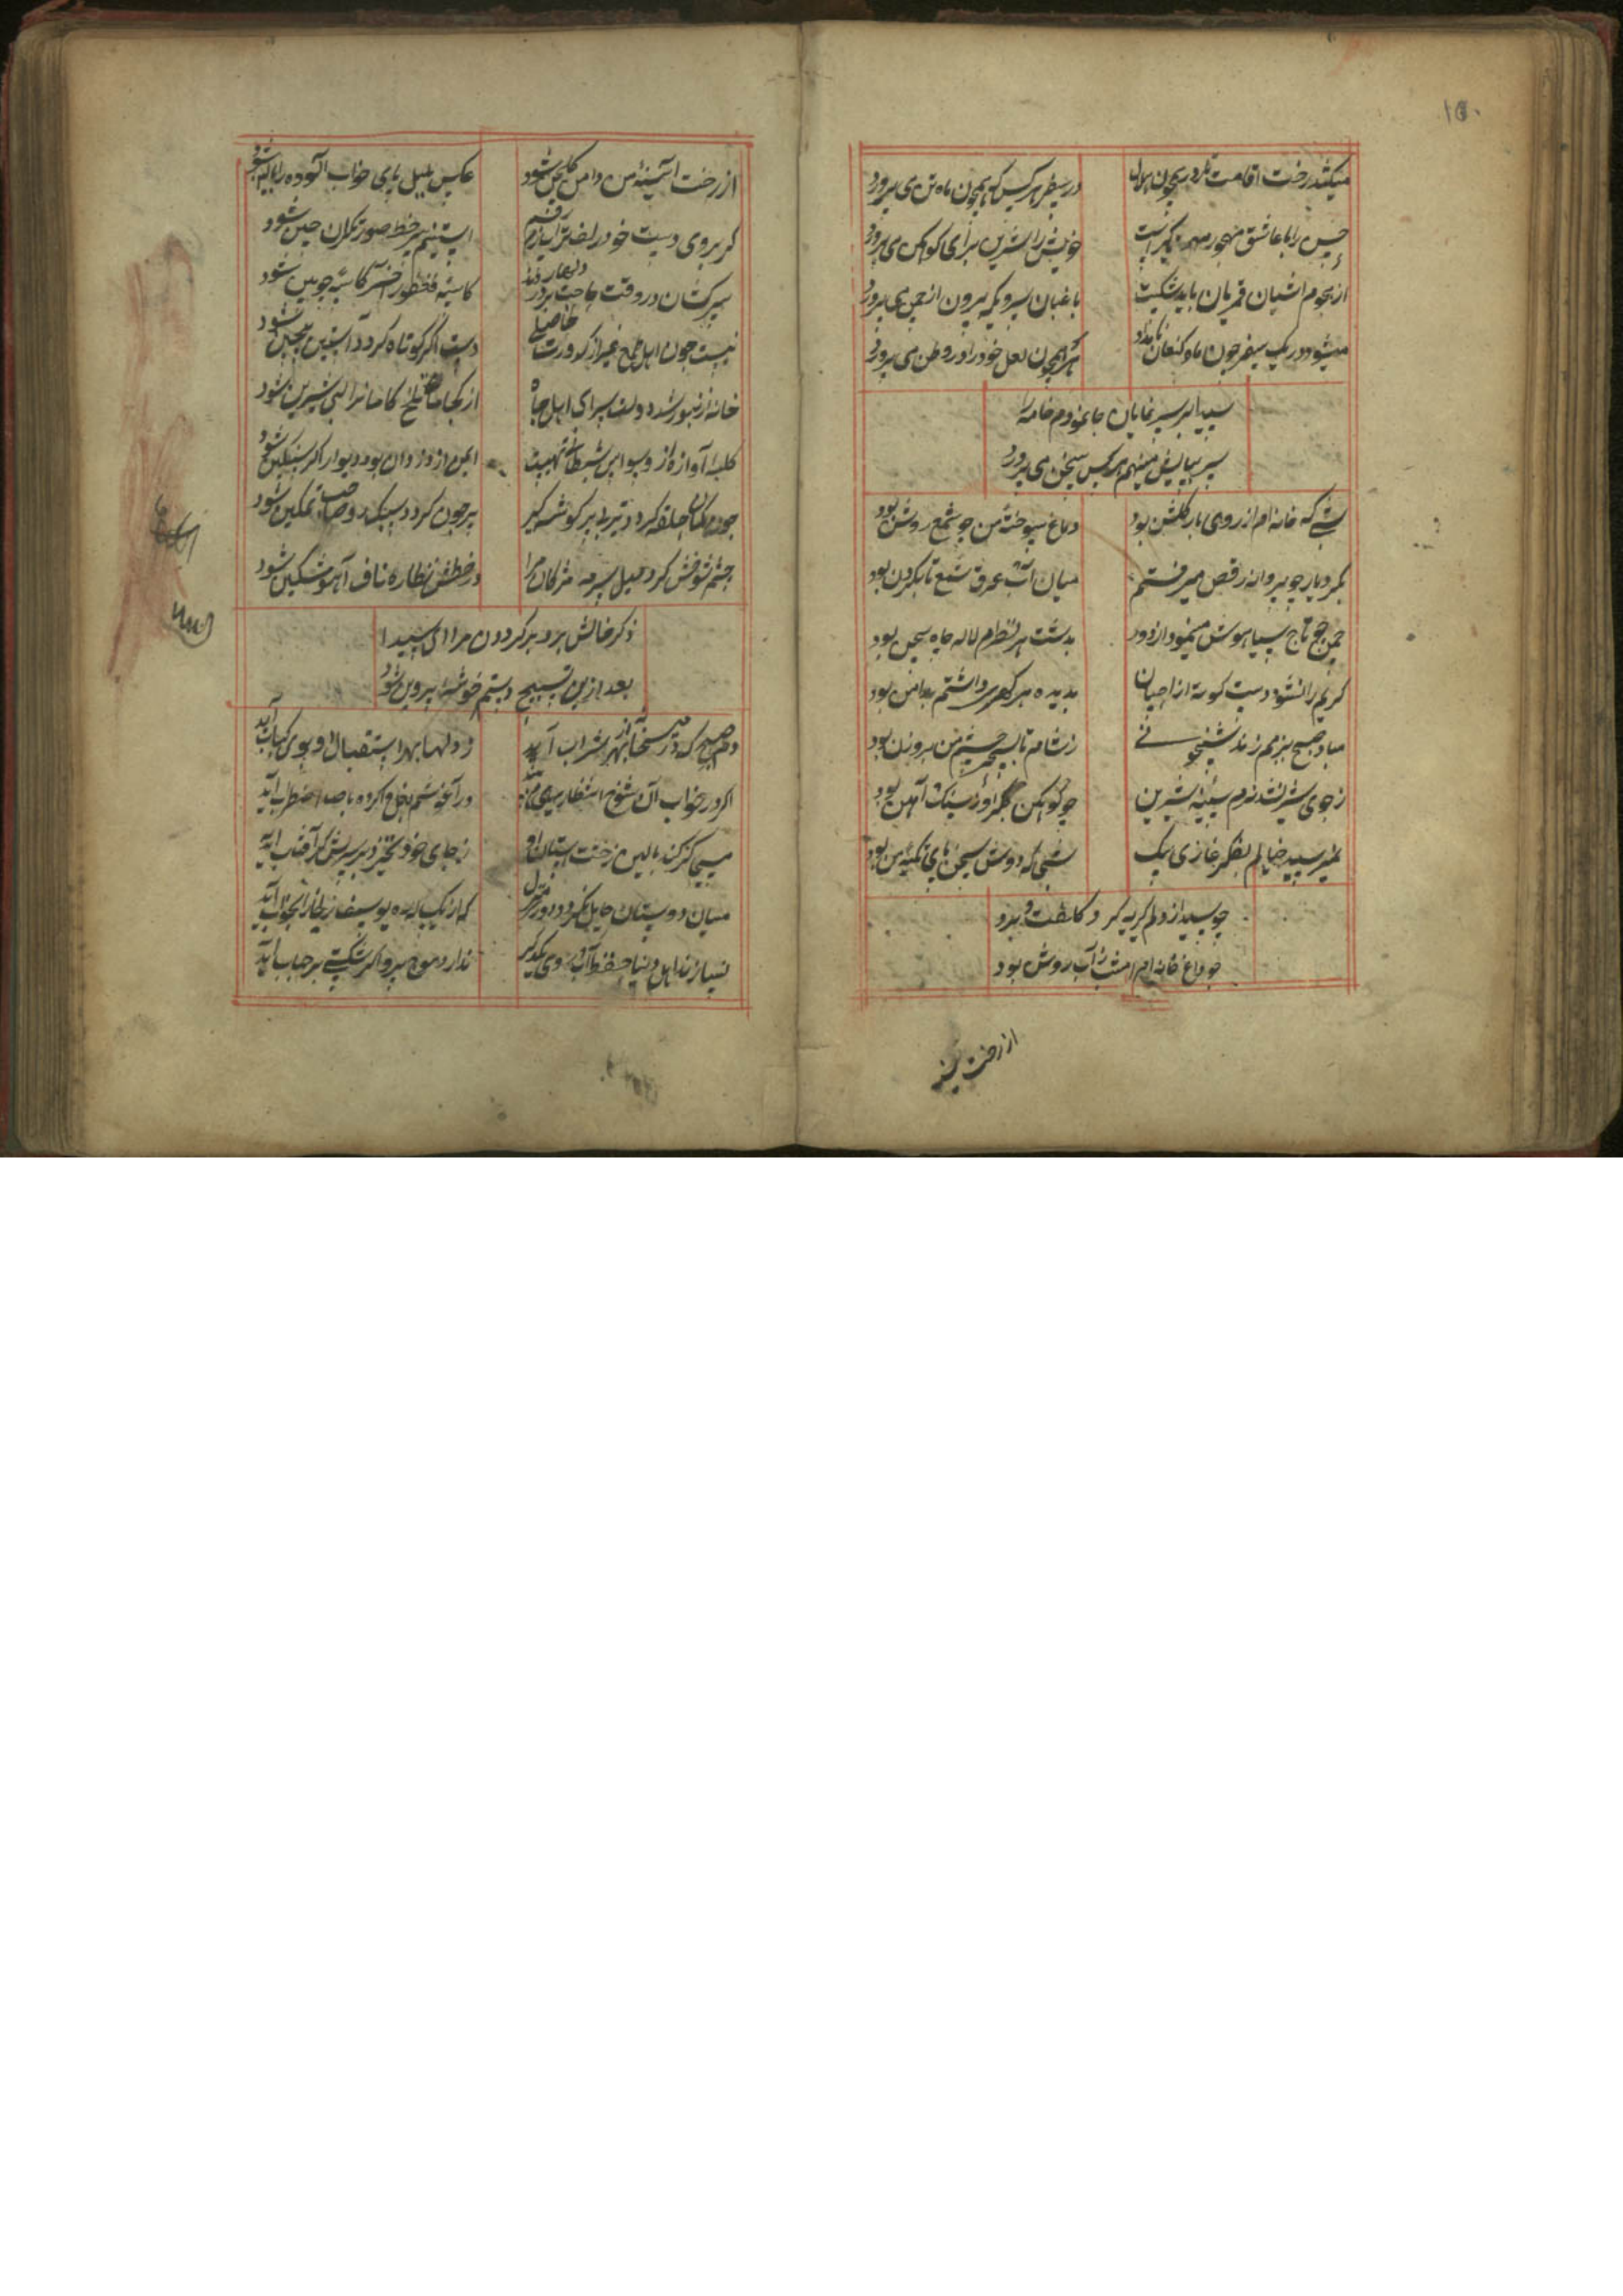 ۱۵۰
میکشد رخت اقامت بر در همچون هلال
در سفر هر کس که همچون ماه تن می پرورد
حسن را با عاشق مهجور مهر دیگر است
خویش را شیرین برای کوهکن می پرورد
از هجوم آشیان قمریان باید شکست
باغبان سرویکه بیرون از چمن می پرورد
میشود در یک سفر چون ماه کنعان نامدار
هر که همچون لعل خود را در وطن می پرورد
سیدا بر سر نمایان جا نمودم خامه را
سر بپایش مینهم هر کس سخن می پرورد
شبی که خانه ام از روی یار گلشن بود
دماغ سوخته من چو شمع روشن بود
بگرد یار چو پروانه رقص میرفتم
میان آتش عرق شمع تا بگردن بود
چمن چو تاج سیاووش مینمود از دور
بدشت هر نظرم لاله چاه بیجن بود
کریم را نشود دست کوته از احسان
بدیده هر گهری داشتم بدامن بود
مباد صبح ببزمم زند شبیخونی
ز شام تا بسحر چشم من بروزن بود
ز جوی شیر نشد نرم سینه شیرین
چو کوهکن جگر او ز سنگ و آهن بود
نمیرسید خیالم بفکر غازی بیک
شبی که دوش سخن پای تکیه من بود
چو سیدا ز دلم گریه گرد کلفت برد
چراغ خانه ام امشب ز آب روشن بود
از رخت آیینه
از رخت آیینه من دامن گلچین شود
عکس بلبل پای خواب آلوده را بالین شود
گر بروی دست خود زلف ترا سازم رقم
آستینم پر خط صورتگران چین شود
سرکشان در وقت حاجت بر در دلها روند
کاسه فغفور آخر کاسه چوبین شود
نیست چون اهل طمع غیر از کدورت حاصلی
دست اگر کوتاه گردد آستین پرچین شود
خانه زنبور شد دولت سرای اهل جاه
از کجا صاحب تلخ کامان را لبی شیرین شود
کلبه آوازه از وسواس شیطان نیست
ایمن از دزدان بود دیوار اگر سنگین شود
چون کمان حلقه گردد تیر بر گوشه گیر
پیر چون گردد سبکرو صاحب تمکین شود
چشم شوخش کرد میل سرمه مژگان مرا
در خطش نظاره ناف آهو مشکین شود
ذکر خالش برد بر گردون مرا ای سیدا
بعد ازین تسبیح دستم خوشه پروین شود
دم صبحی که در میخانه آن بهر شراب آید
ز دلها بهر استقبال او بوی کباب آید
اگر در خواب آن شوخ انتظاریهای من بیند
در آغوشم بغل وا کرده با صد اضطراب آید
مسیحا گر کند بالین ز خشت آستان او
ز جای خود نخیزد بر سرش گر آفتاب آید
میان دوستان حایل نگردد دوری منزل
که از یک ماهه ره یوسف زلیخا را بخواب آید
نسازند اهل دنیا حفظ آبروی یکدیگر
ندارد موج پروا گر شکستی بر حباب آید